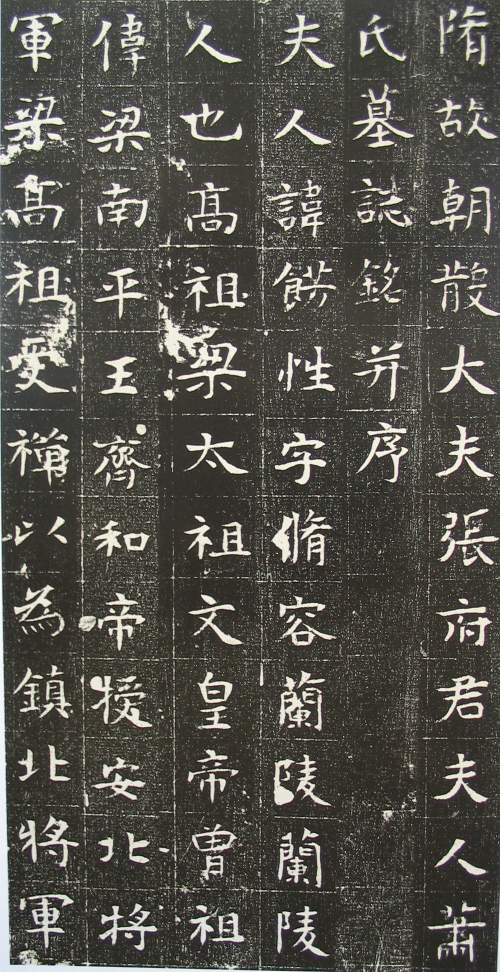 隋故朝散大夫張府君夫人蕭
氏墓誌銘并序
夫人諱餝性字脩容蘭陵蘭陵
人也高祖梁太祖文皇帝曽祖
偉梁南平王齊和帝授安北將
軍梁髙祖受禅以為鎮北將軍